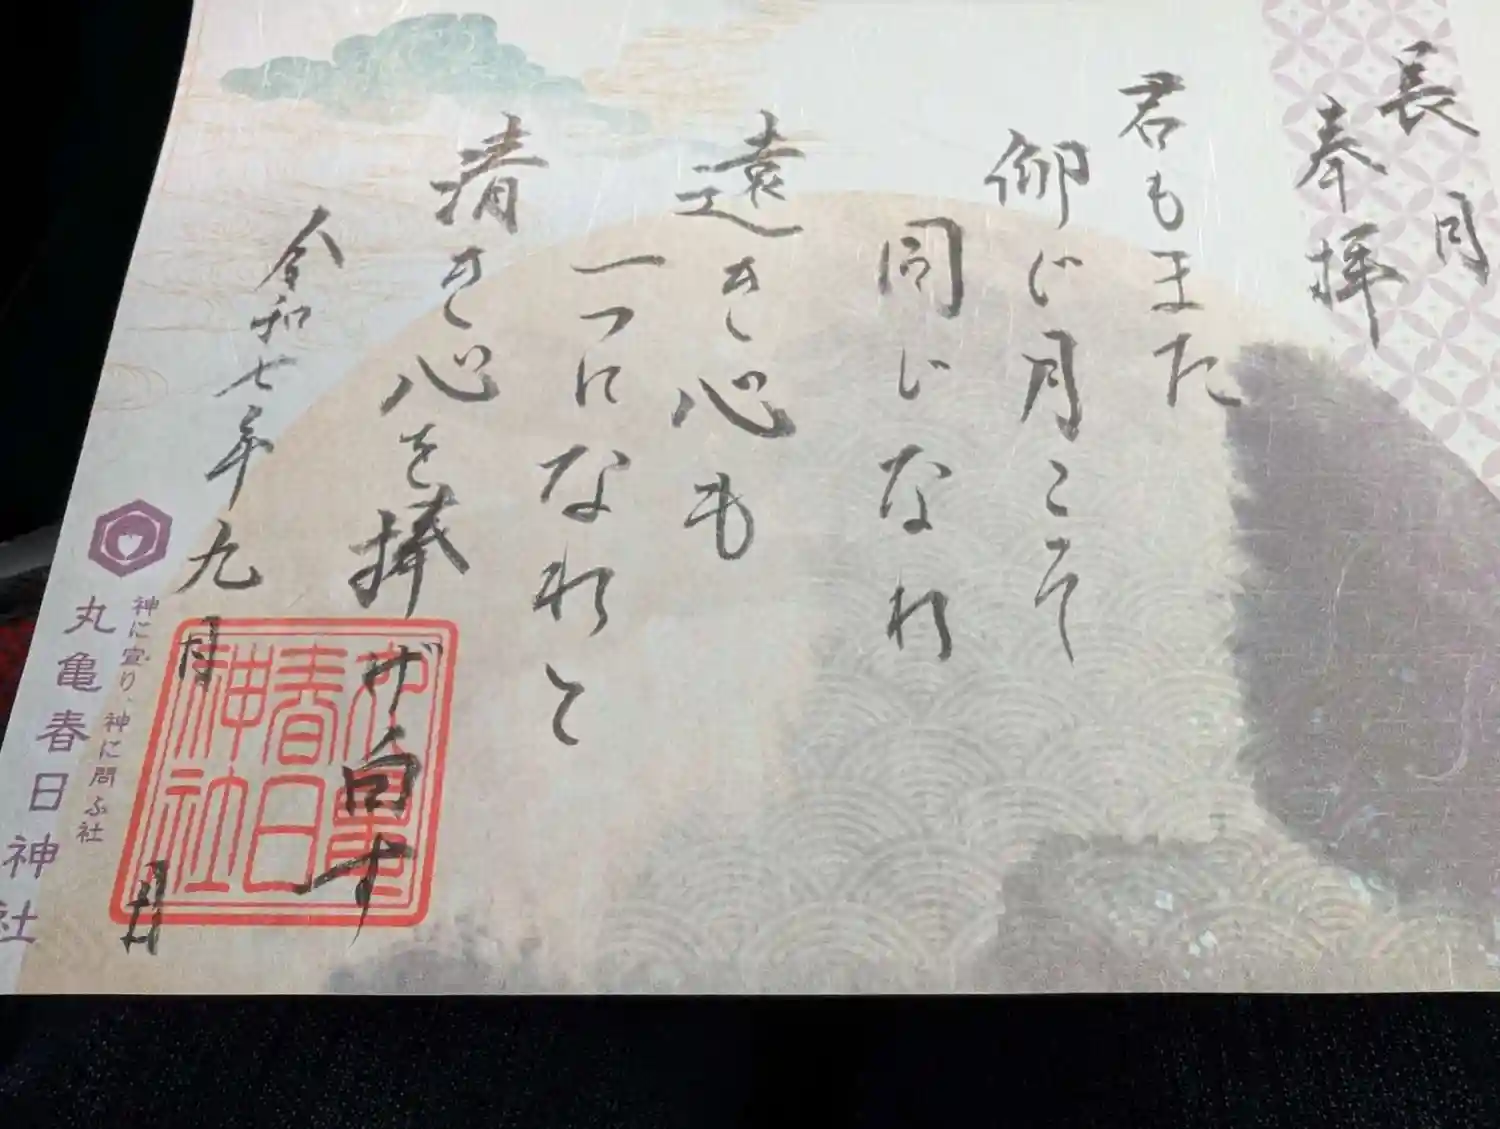 長月
奉拝
君もまた
仰ぐ月こそ
同じなれ
遠き心も
一つになれと
清き心を捧げ白す
令和七年九月 月
神に宣り、神に問ふ社
丸亀春日神社
春日
神社